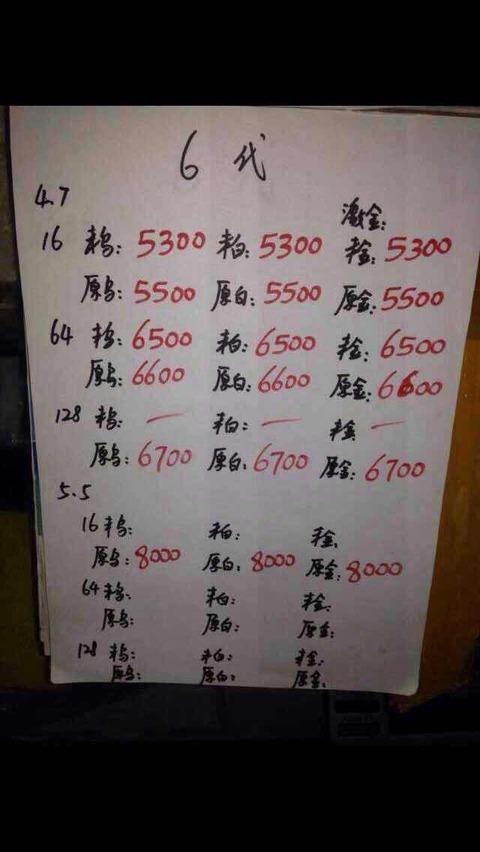 6 代
4.7
激金:
16 未乌: 5300 未白: 5300 未金: 5300
原乌: 5500 原白: 5500 原金: 5500
64 未乌: 6500 未白: 6500 未金: 6500
原乌: 6600 原白: 6600 原金: 6600
128 未乌: — 未白: — 未金: —
原乌: 6700 原白: 6700 原金: 6700
5.5
16 未乌: 未白: 未金:
原乌: 8000 原白: 8000 原金: 8000
64 未乌: 未白: 未金:
原乌: 原白: 原金:
128 未乌: 未白: 未金:
原乌: 原白: 原金: